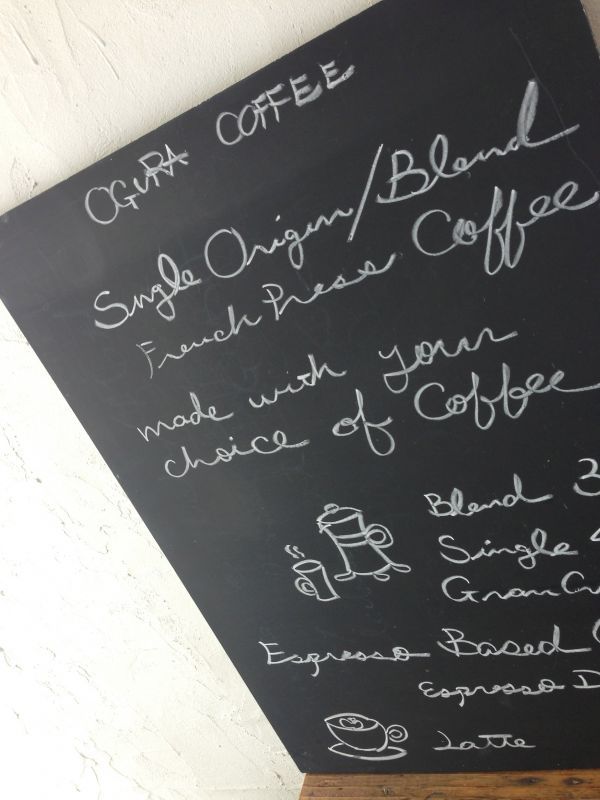 OGURA COFFEE
Single Origin/Blend
French Press Coffee
made with your
choice of Coffee
Blend 3
Single
Gran
Espresso Based
Espresso
Latte